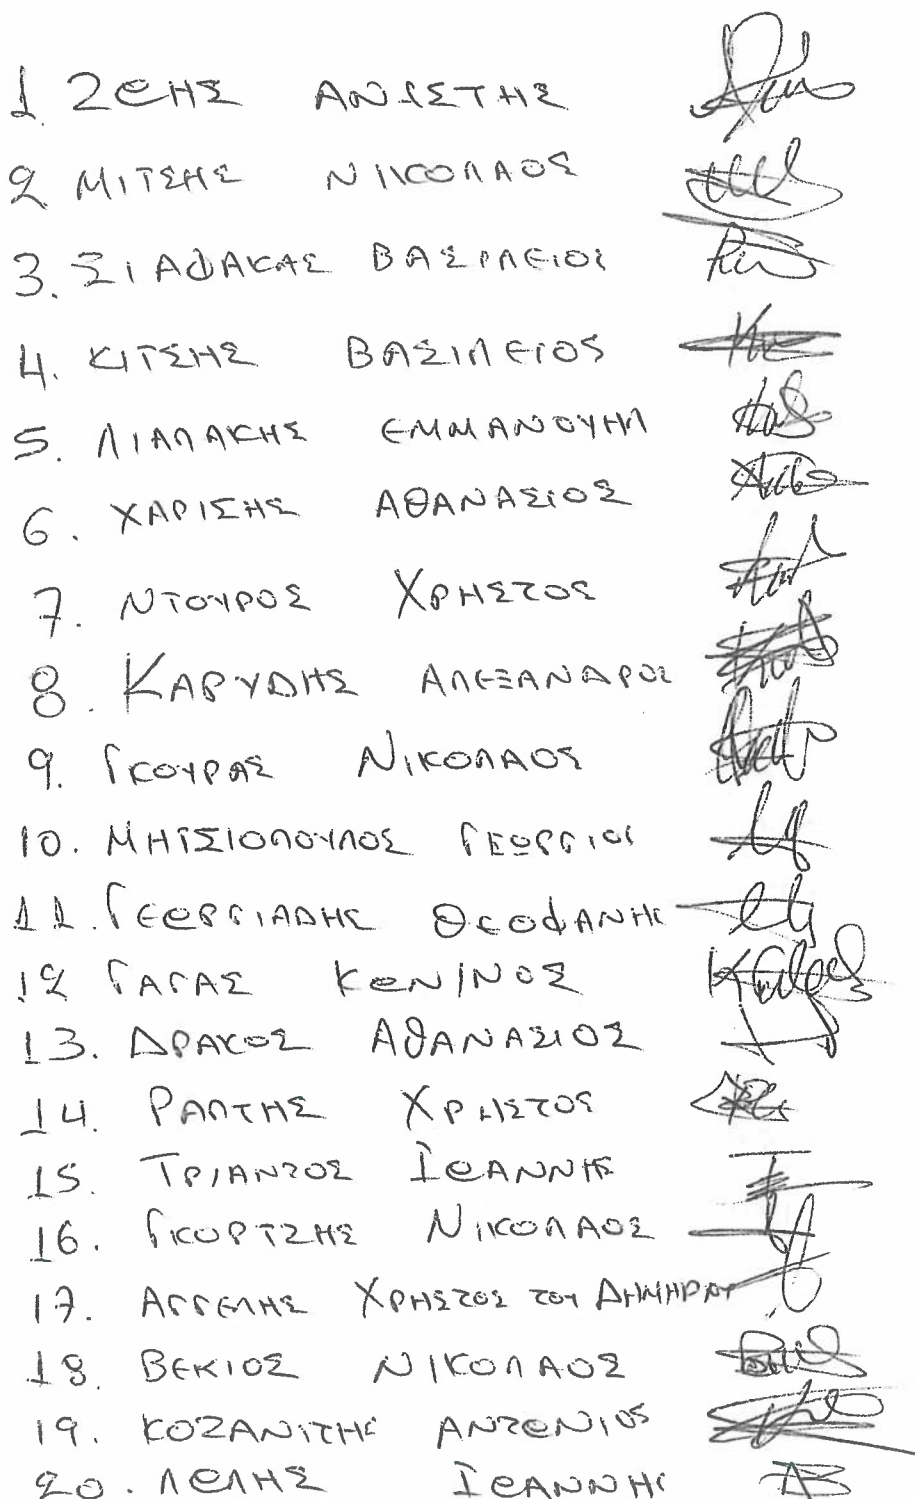 1 ΖΩΗΣ ΑΝΕΣΤΗΣ
2 ΜΙΤΣΗΣ ΝΙΚΟΛΑΟΣ
3. ΣΙΑΦΑΚΑΣ ΒΑΣΙΛΕΙΟΣ
4. ΚΙΤΣΗΣ ΒΑΣΙΛΕΙΟΣ
5. ΛΙΑΛΑΚΗΣ ΕΜΜΑΝΟΥΗΛ
6. ΧΑΡΙΣΗΣ ΑΘΑΝΑΣΙΟΣ
7. ΝΤΟΥΡΟΣ ΧΡΗΣΤΟΣ
8. ΚΑΡΥΔΗΣ ΑΛΕΞΑΝΔΡΟΣ
9. ΓΚΟΥΡΑΣ ΝΙΚΟΛΑΟΣ
10. ΜΗΤΣΙΟΠΟΥΛΟΣ ΓΕΩΡΓΙΟΣ
11. ΓΕΩΡΓΙΑΔΗΣ ΘΕΟΦΑΝΗΣ
12 ΓΑΓΑΣ ΚΩΝ/ΝΟΣ
13. ΔΡΑΚΟΣ ΑΘΑΝΑΣΙΟΣ
14. ΡΑΠΤΗΣ ΧΡΗΣΤΟΣ
15. ΤΡΙΑΝΤΟΣ ΙΩΑΝΝΗΣ
16. ΓΚΟΡΤΖΗΣ ΝΙΚΟΛΑΟΣ
17. ΑΓΓΕΛΗΣ ΧΡΗΣΤΟΣ ΤΟΥ
18. ΒΕΚΙΟΣ ΝΙΚΟΛΑΟΣ
19. ΚΟΖΑΝΙΤΗΣ ΑΝΤΩΝΙΟΣ
20. ΛΕΛΗΣ ΙΩΑΝΝΗΣ